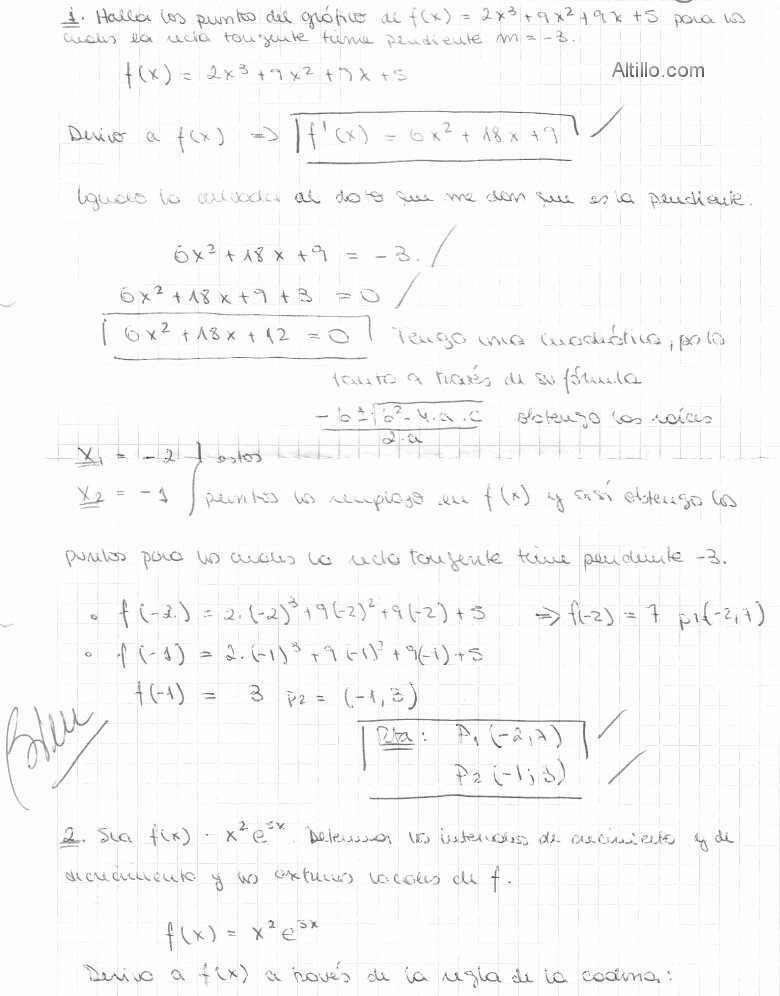 1. Hallar los puntos del gráfico de f(x) = 2x³ + 9x² + 9x + 5 para los
cuales la recta tangente tiene pendiente m = -3.
f(x) = 2x³ + 9x² + 9x + 5
Altillo.com
Derivo a f(x) => f'(x) = 6x² + 18x + 9
Igualo la derivada al dato que me dan que es la pendiente.
6x² + 18x + 9 = -3.
6x² + 18x + 9 + 3 = 0
6x² + 18x + 12 = 0 Tengo una cuadrática, por lo
tanto a través de su fórmula
-b ± √b² - 4.a.c / 2.a obtengo las raíces
x₁ = -2 } estos
x₂ = -1 puntos los remplazo en f(x) y así obtengo los
puntos para los cuales la recta tangente tiene pendiente -3.
• f(-2) = 2.(-2)³ + 9(-2)² + 9(-2) + 5 => f(-2) = 7 p₁(-2,7)
• f(-1) = 2.(-1)³ + 9(-1)² + 9(-1) + 5
f(-1) = 3 p₂ = (-1,3)
Rta: P₁ (-2,7)
P₂ (-1;3)
Bien
2. Sea f(x) = x²e³ˣ. Determinar los intervalos de crecimiento y de
decrecimiento y los extremos locales de f.
f(x) = x²e³ˣ
Derivo a f(x) a través de la regla de la cadena: